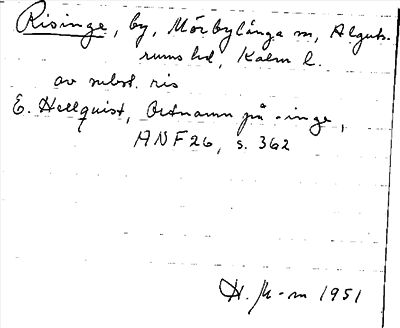 Risinge, by, Mörbylånga sn, Alguts-
rums hd, Kalm l.
av subst. ris
E. Hellquist, Ortnamn på -inge,
ANF 26, s. 362
H. M-m 1951